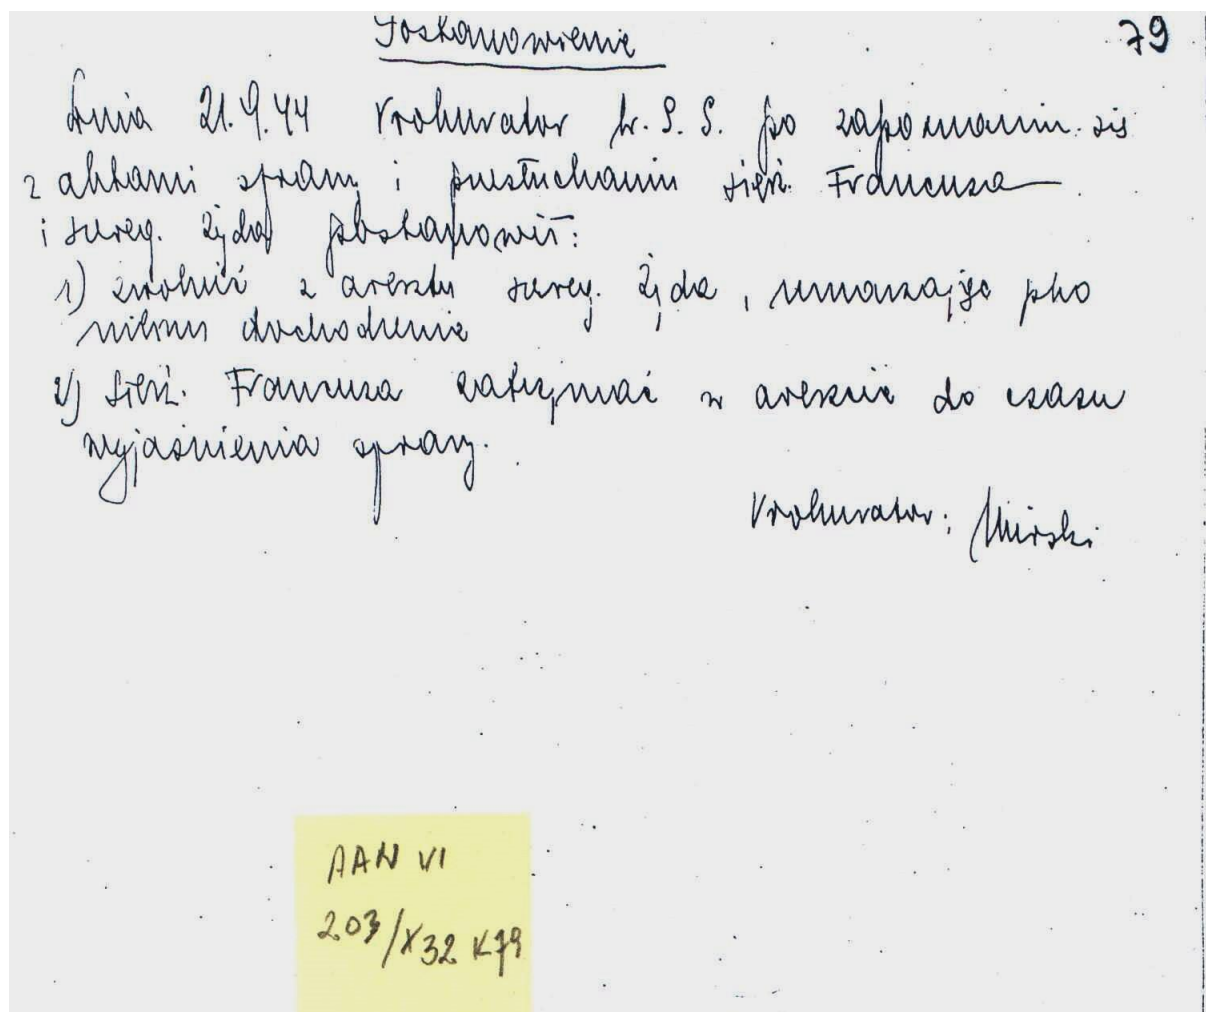 Postanowienie
79
Dnia 21.9.44 Prokurator W.S.S. po zapoznaniu się
z aktami sprawy i przesłuchaniu sierż. Francuza
i szereg. Żyda postanowił:
1) zwolnić z aresztu szereg. Żyda, umarzając pko
niemu dochodzenie
2) sierż. Francuza zatrzymać w areszcie do czasu
wyjaśnienia sprawy.
Prokurator: Mirski
AAN VI
203/X32 K79